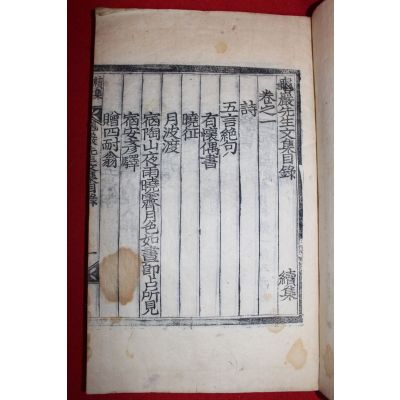 龜巖先生文集目錄 續集
卷之一
詩
五言絶句
有懷偶書
曉征
月波渡
宿陶山夜雨曉霽月色如晝卽占所見
宿安彦驛
贈四耐翁
續集 先生文集目錄 一